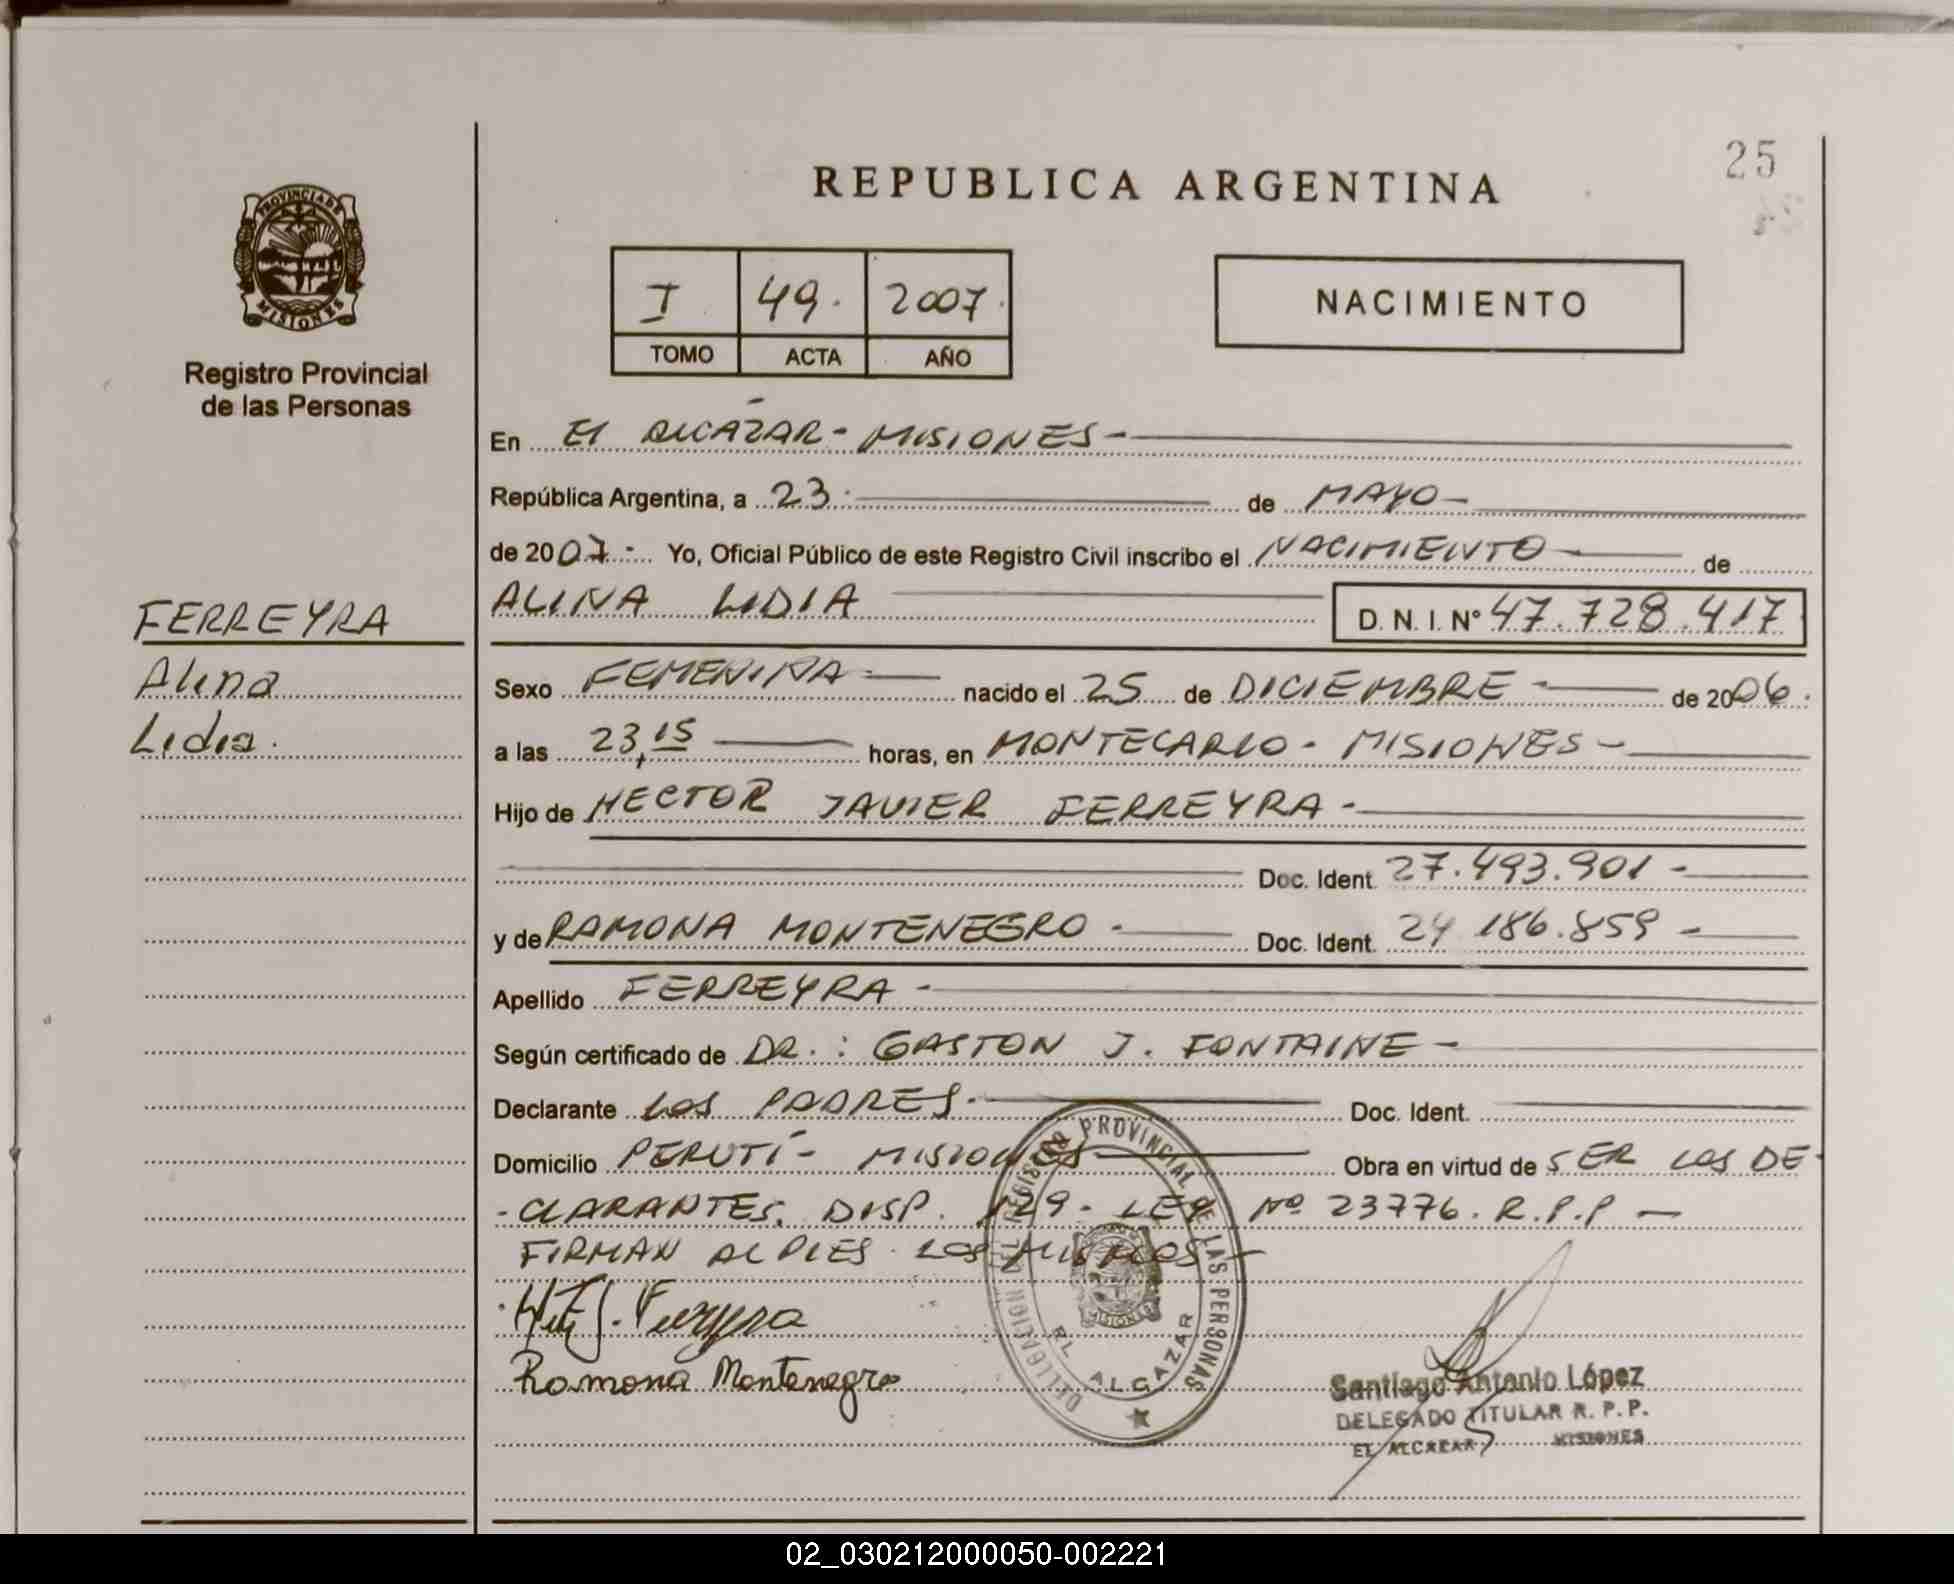 25
REPUBLICA ARGENTINA
PROVINCIA DE
MISIONES
Registro Provincial
de las Personas
I 49. 2007.
TOMO ACTA AÑO
NACIMIENTO
En El ALCAZAR - MISIONES -
República Argentina, a 23 - de MAYO -
de 2007 - Yo, Oficial Público de este Registro Civil inscribo el NACIMIENTO - de
ALINA LIDIA D. N. I. Nº 47.728.417
FERREYRA
Alina
Lidia.
Sexo FEMENINA - nacido el 25 de DICIEMBRE - de 2006.
a las 23,15 horas, en MONTECARLO - MISIONES -
Hijo de HECTOR JAVIER FERREYRA -
Doc. Ident. 27.493.901 -
y de RAMONA MONTENEGRO - Doc. Ident. 24 186.859 -
Apellido FERREYRA -
Según certificado de DR. : GASTON J. FONTAINE -
Declarante LOS PADRES - Doc. Ident.
Domicilio PERUTÍ - MISIONES - Obra en virtud de SER LOS DE-
- CLARANTES. DISP. 129 - LEY Nº 23776. R.P.P -
FIRMAN AL PIES LOS MISMOS -
Ferreyra
Ramona Montenegro
DELEGACION DEL REGISTRO PROVINCIAL DE LAS PERSONAS
EL ALCAZAR
MISIONES
Santiago Antonio López
DELEGADO TITULAR R. P. P.
EL ALCAZAR MISIONES
02_030212000050-002221